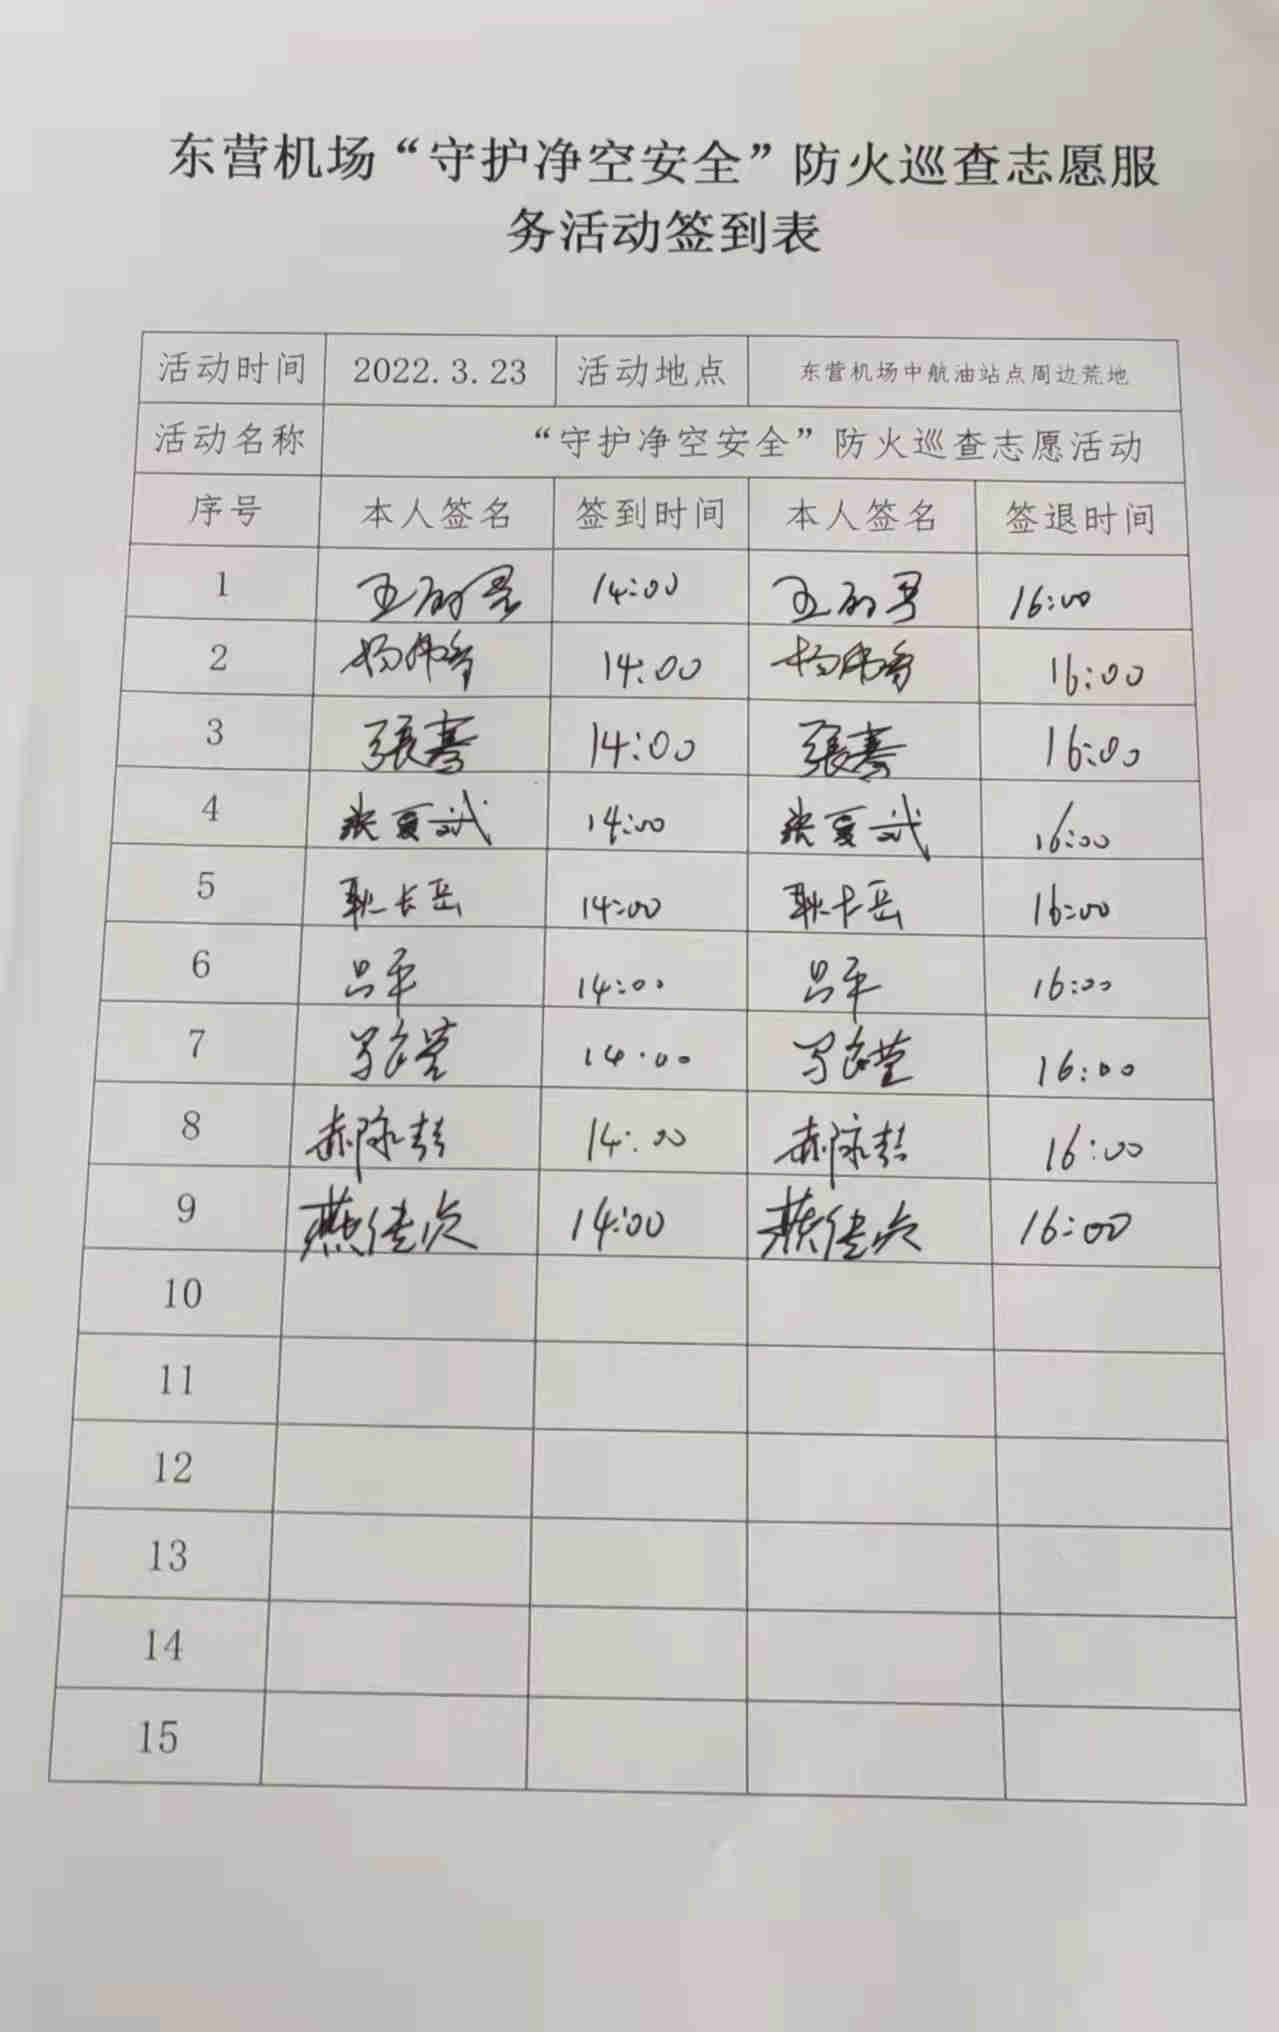 东营机场“守护净空安全”防火巡查志愿服
务活动签到表
活动时间 2022.3.23 活动地点 东营机场中航油站点周边荒地
活动名称 “守护净空安全”防火巡查志愿活动
序号 本人签名 签到时间 本人签名 签退时间
1 14:00 16:00
2 14:00 16:00
3 張骞 14:00 張骞 16:00
4 张夏斌 14:00 张夏斌 16:00
5 耿长岳 14:00 耿长岳 16:00
6 吕平 14:00 吕平 16:00
7 14:00 16:00
8 郝咏喆 14:00 郝咏喆 16:00
9 燕佳贞 14:00 燕佳贞 16:00
10
11
12
13
14
15